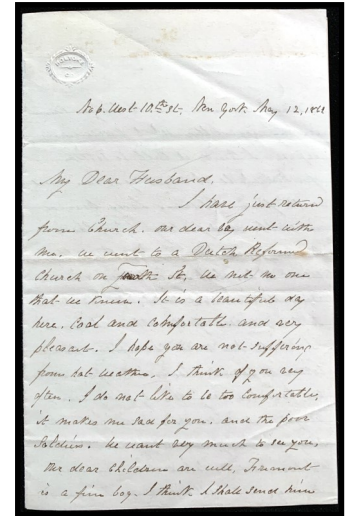 No 6. West 10th St. New York May 12, 186
My Dear Husband.
I have just return
from Church. our dear boy went with
me. we went to a Dutch Reformed
Church on St. We met no one
that we know. It is a beautiful day
here. Cool and comfortable and very
pleasant. I hope you are not suffering
from hot weather. I think of you very
often. I do not like to be too comfortable,
it makes me sad for you, and the poor
Soldiers. We want very much to see you,
Our dear children are well, Fremont
is a fine boy. I think I shall send him